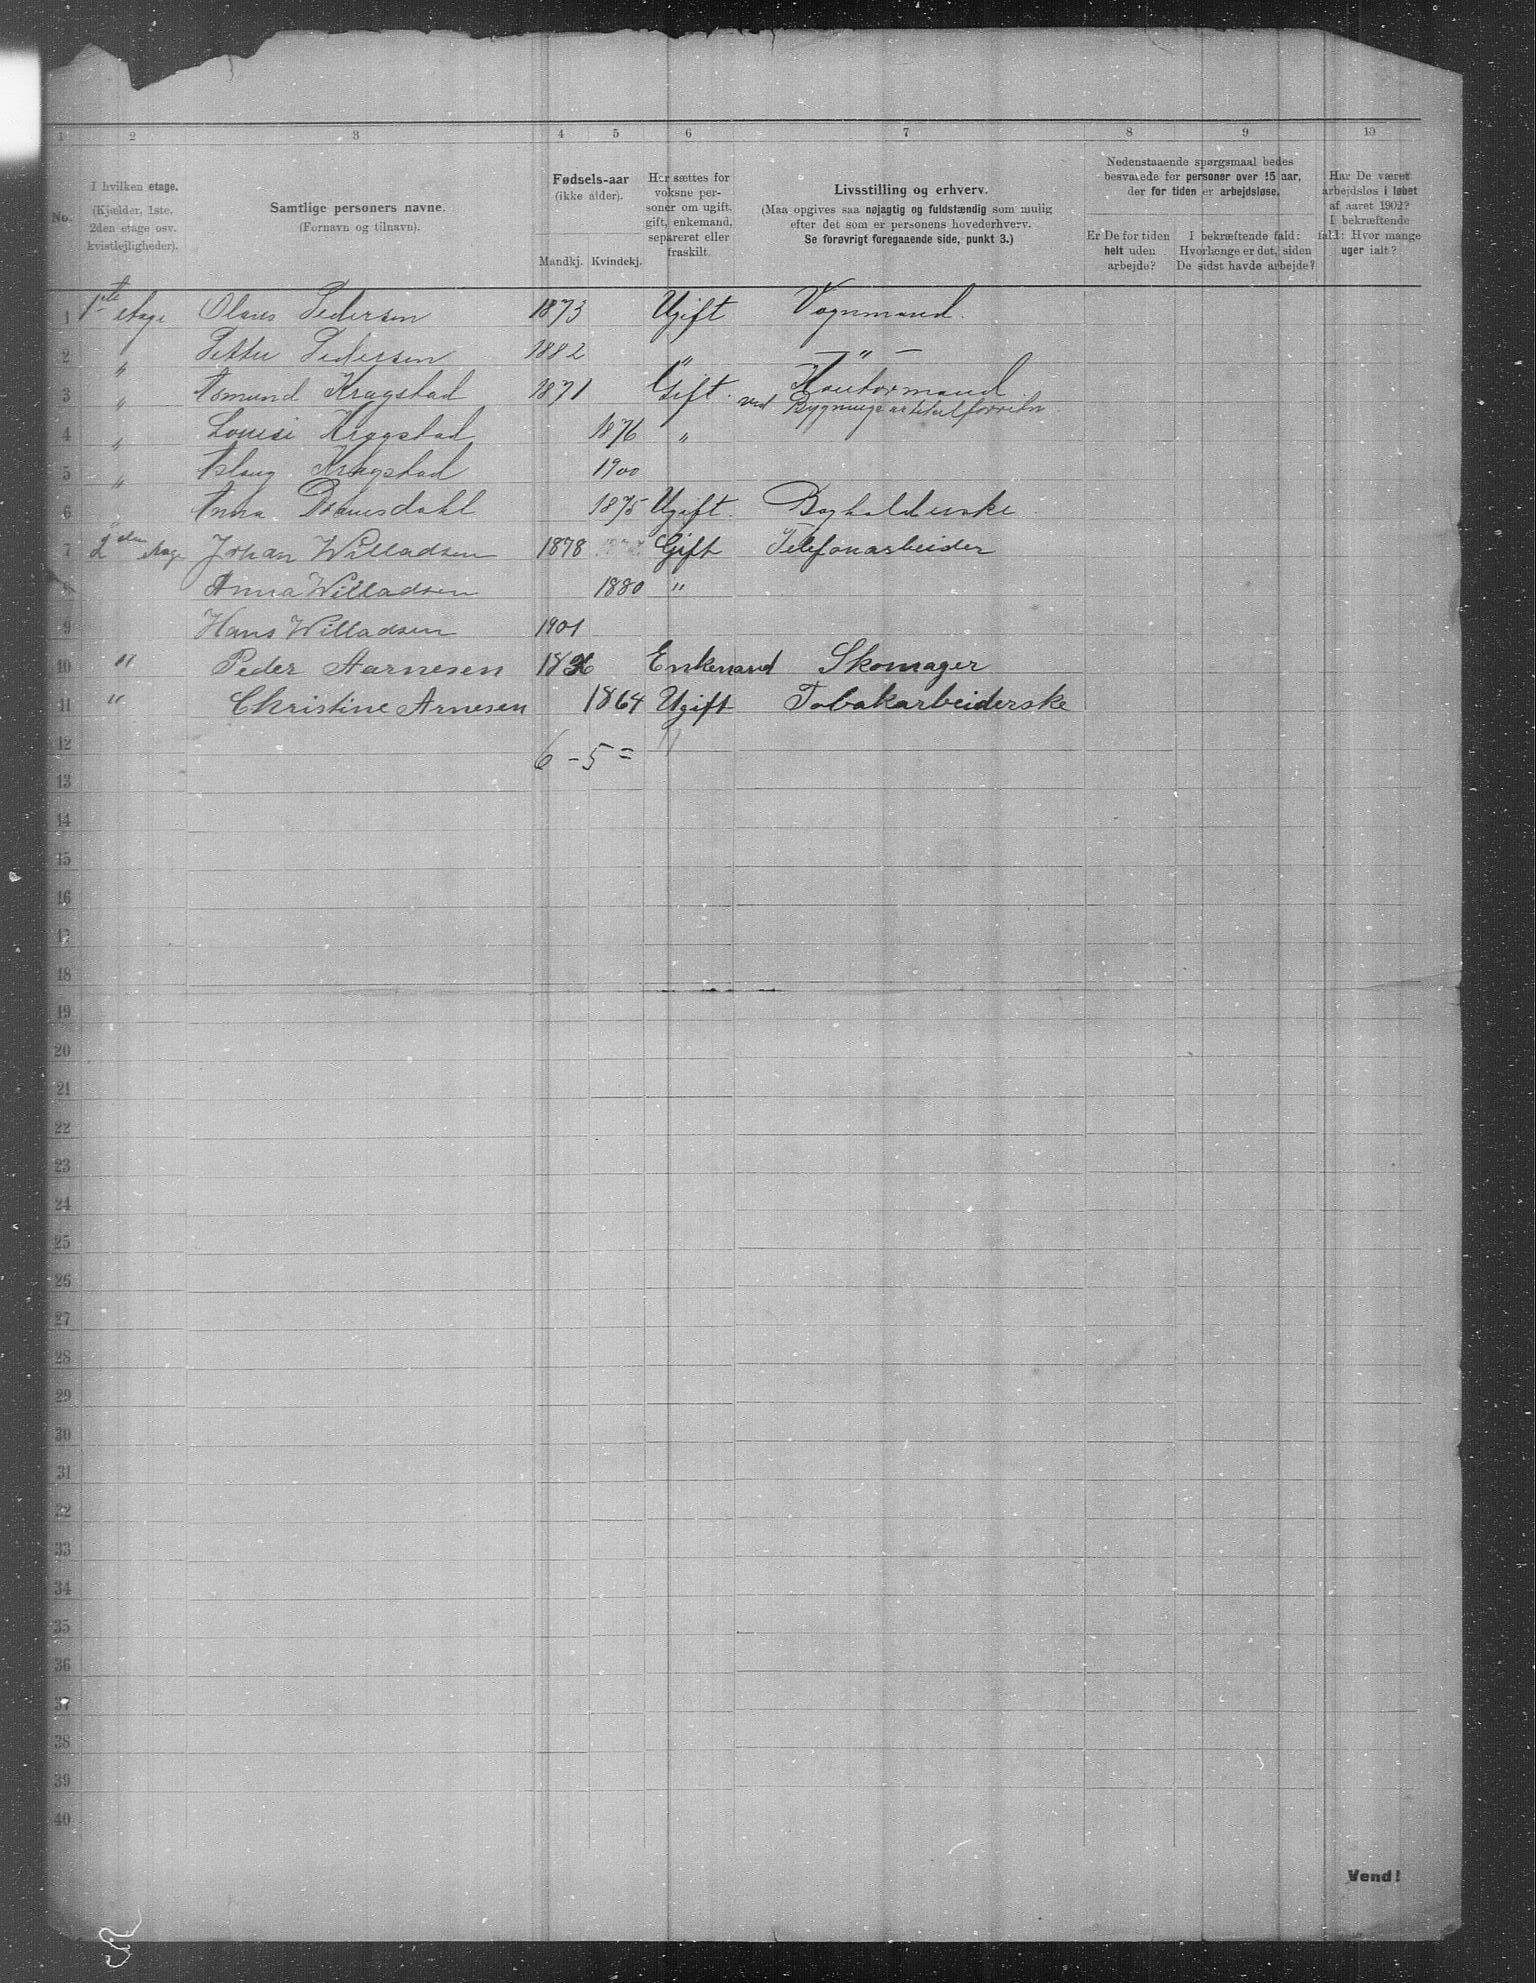 1 2 3 4 5 6 7 8 9 10
No.
I hvilken etage.
(Kjælder, 1ste,
2den etage osv.
kvistlejligheder).
Samtlige personers navne.
(Fornavn og tilnavn).
Fødsels-aar
(ikke alder).
Mandkj. Kvindekj.
Her sættes for
voksne per-
soner om ugift,
gift, enkemand,
separeret eller
fraskilt.
Livsstilling og erhverv.
(Maa opgives saa nøjagtig og fuldstændig som mulig
efter det som er personens hovederhverv.
Se forøvrigt foregaaende side, punkt 3.)
Nedenstaaende spørgsmaal bedes
besvarede for personer over 15 aar,
der for tiden er arbejdsløse.
Er De for tiden
helt uden
arbejde?
I bekræftende fald:
Hvorlænge er det, siden
De sidst havde arbejde?
Har De været
arbejdsløs i løbet
af aaret 1902?
I bekræftende
fald: Hvor mange
uger ialt?
1 1ste etage Olaus Pedersen 1873 Ugift Vognmand.
2 " Petter Pedersen 1882 " — " —
3 " Asmund Kragstad 1871 Gift. Kontormand
ved Bygningsartikelforretn
4 " Louise Kragstad 1876 "
5 " Aslaug Kragstad 1900
6 " Anna Dramsdahl 1875 Ugift. Bogholderske
7 2den etage Johan Willadsen 1878 Gift Telefonarbeider
8 Anna Willadsen 1880 "
9 Hans Willadsen 1901
10 " Peder Aarnesen Enkemand Skomager
11 " Christine Arnesen 1864 Ugift Tobakarbeiderske
12
6 – 5 =
13
14
15
16
17
18
19
20
21
22
23
24
25
26
27
28
29
30
31
32
33
34
35
36
37
38
39
40
Vend!